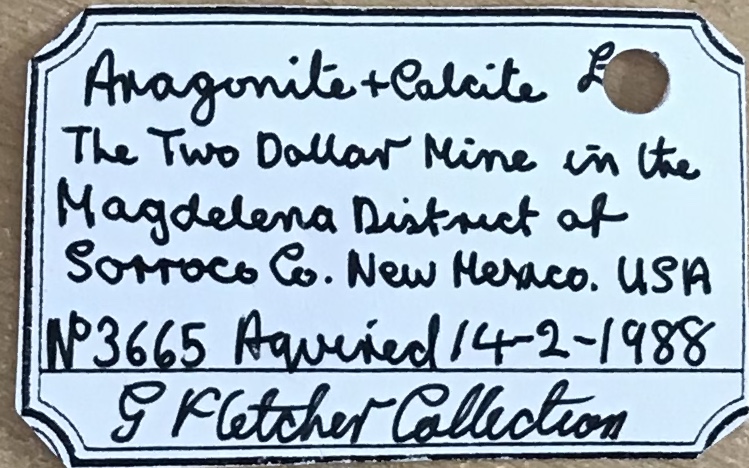 Aragonite + Calcite £
The Two Dollar Mine in the
Magdelena District of
Sorroco Co. New Mexaco. USA
Nº 3665 Aquired 14-2-1988
G Fletcher Collection